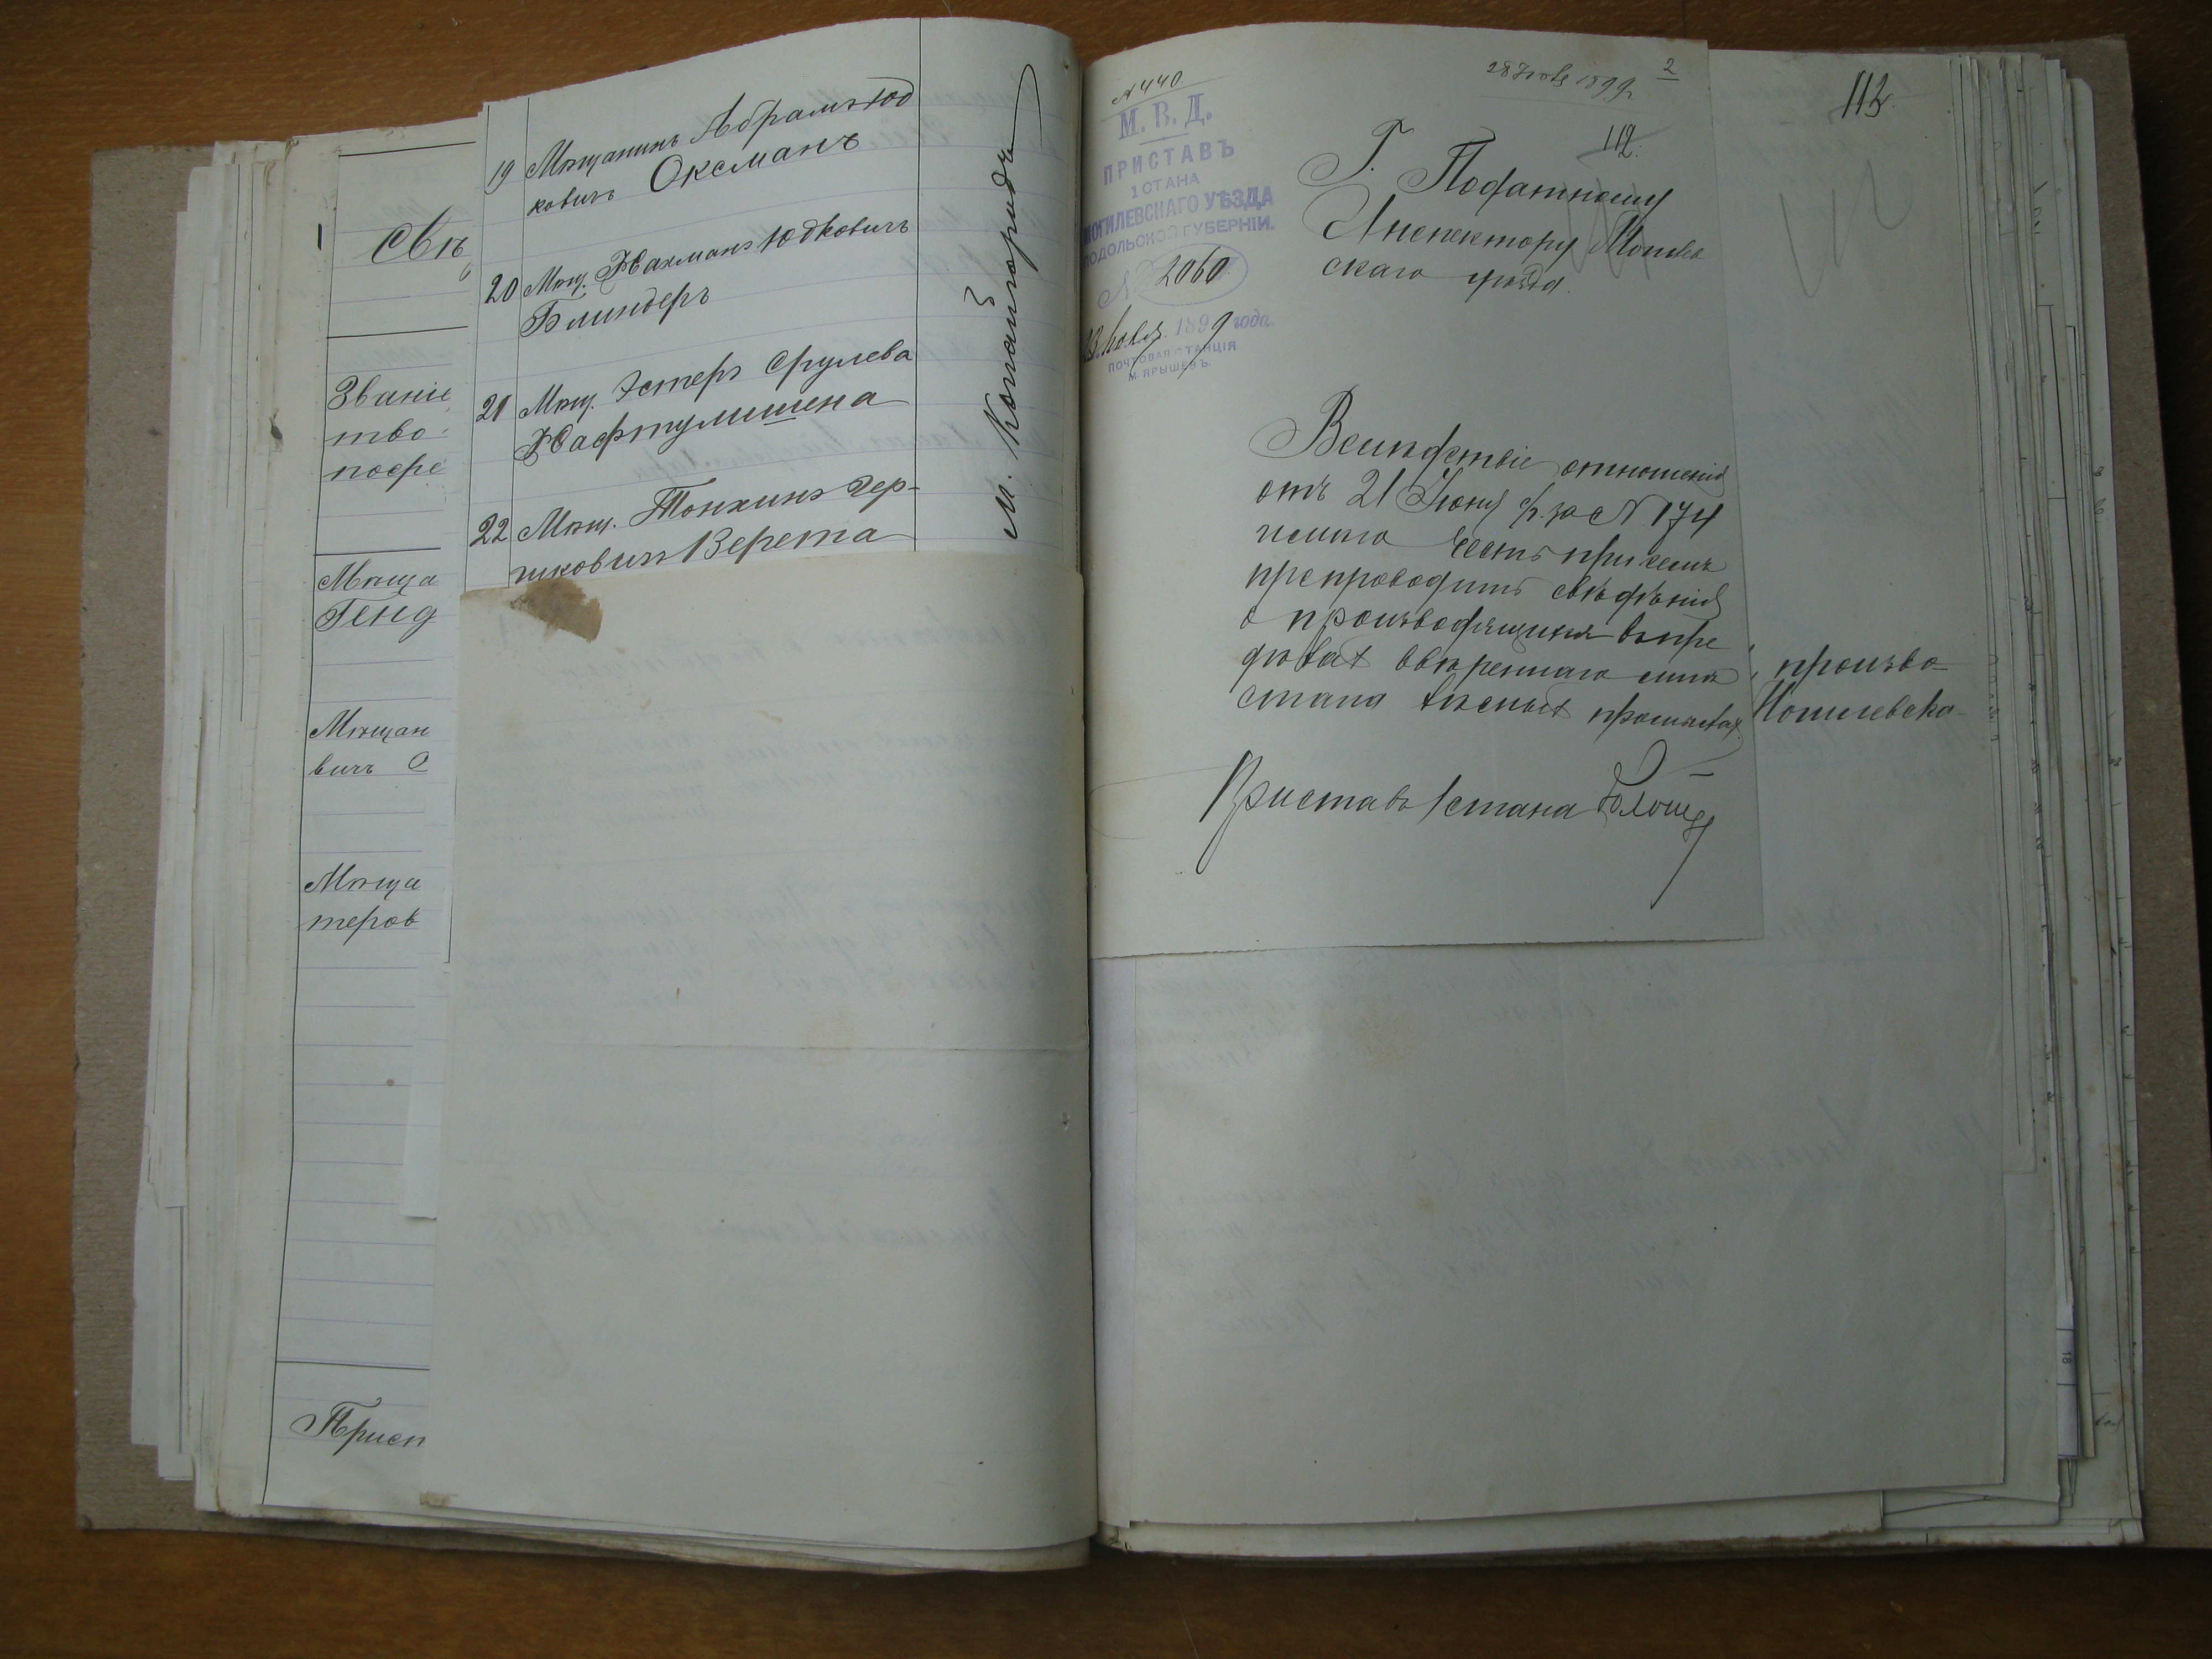 Свѣ
Званіе
тво
посре
Мѣща
Генд
Мѣщан
вичъ О
Мѣща
теров
Присп
19 Мѣщанинъ Абрамъ Юд
ковичъ Оксманъ
20 Мѣщ. Нахманъ Юдковичъ
Блиндеръ
21 Мѣщ. Эстеръ Срулева
Нафтулишена
22 Мѣщ. Тонхинъ Гер-
шковичъ Верета
м. Копайгородъ
№ 440
28 Іюля 1899 г.
2
112.
М. В. Д.
ПРИСТАВЪ
1 СТАНА
МОГИЛЕВСКАГО УѢЗДА
ПОДОЛЬСКОЙ ГУБЕРНІИ.
№ 2060
Іюля 1899 года.
ПОЧТОВАЯ СТАНЦІЯ
М. ЯРЫШЕВЪ.
Г. Податному
Инспектору Могилев
скаго уѣзда.
Вслѣдствіе отношенія
отъ 21 Іюня с. г. за № 174
имѣю честь при семъ
препроводить свѣдѣнія
о производящихся въ пре
дѣлах ввѣреннаго мнѣ
стана лѣсных промыслах.
Приставъ 1 стана
113.
произво
Могилевска
18